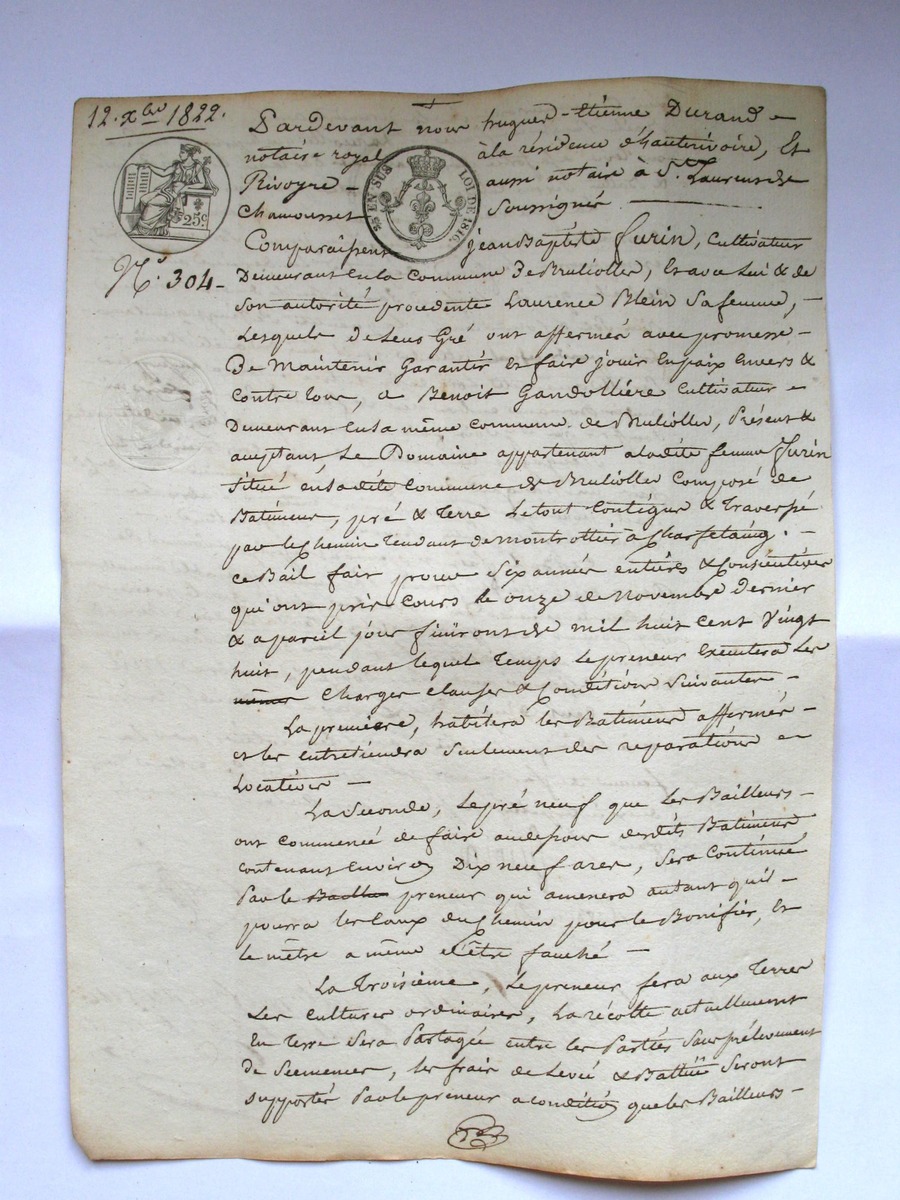 12. xbre 1822.
Pardevant nous hugues-Etienne Durand
notaire royal à la résidence d'hauterivoire, Et
Rivoyre aussi notaire à St. Laurent de
Chamousset Soussignés
EN SUS LOI DE 1816.
25c
No. 304
Comparaissent jean Baptiste Jurin, Cultivateur
Demeurant En la Commune De Brullioles, Et avec Lui & de
son autorité procedente Laurence Blein Sa femme,
Lesquels de Leur Gré ont affermés avec promesse
De Maintenir Garantir Et faire jouir En paix Envers &
Contre tous, a Benoit Gandollière Cultivateur
Demeurant En la même Commune de Brullioles, Présent &
acceptant, Le Domaine appartenant a la dite femme Jurin
Situé en la dite Commune de Brullioles Composé de
Batiments, pré & Terre Le tout Contigus & Traversé
par le Chemin Tendant de montrottier à
ce Bail fait pour Six années entières & Consécutives
qui ont pris Cours le onze de Novembre Dernier
& a pareil jour finiront de mil huit Cent Vingt
huit, pendant lequel Temps Le preneur Executera Les
mêmes Charges clauses & Conditions Suivantes
La première, habitera les Batiments affermés
et les entretiendra Seulement des réparations
Locatives
La Seconde, Le pré neuf que Les Bailleurs
ont commencé de faire au desous desdits Batiments
contenant Environ Dix neuf ares, Sera Continué
Par le Baille preneur qui amenera autant qu'il
pourra les Eaux du Chemin pour le Bonifier, Et
le mêtre a même d'être fauché
La Troisième, Le preneur fera aux Terres
Les Cultures ordinaires, La récolte actuellement
En Terre Sera Partagée entre les Parties Sans prélevement
de Seemences, les frais de Levée & Battue Seront
supportés Par le preneur a condition que les Bailleurs